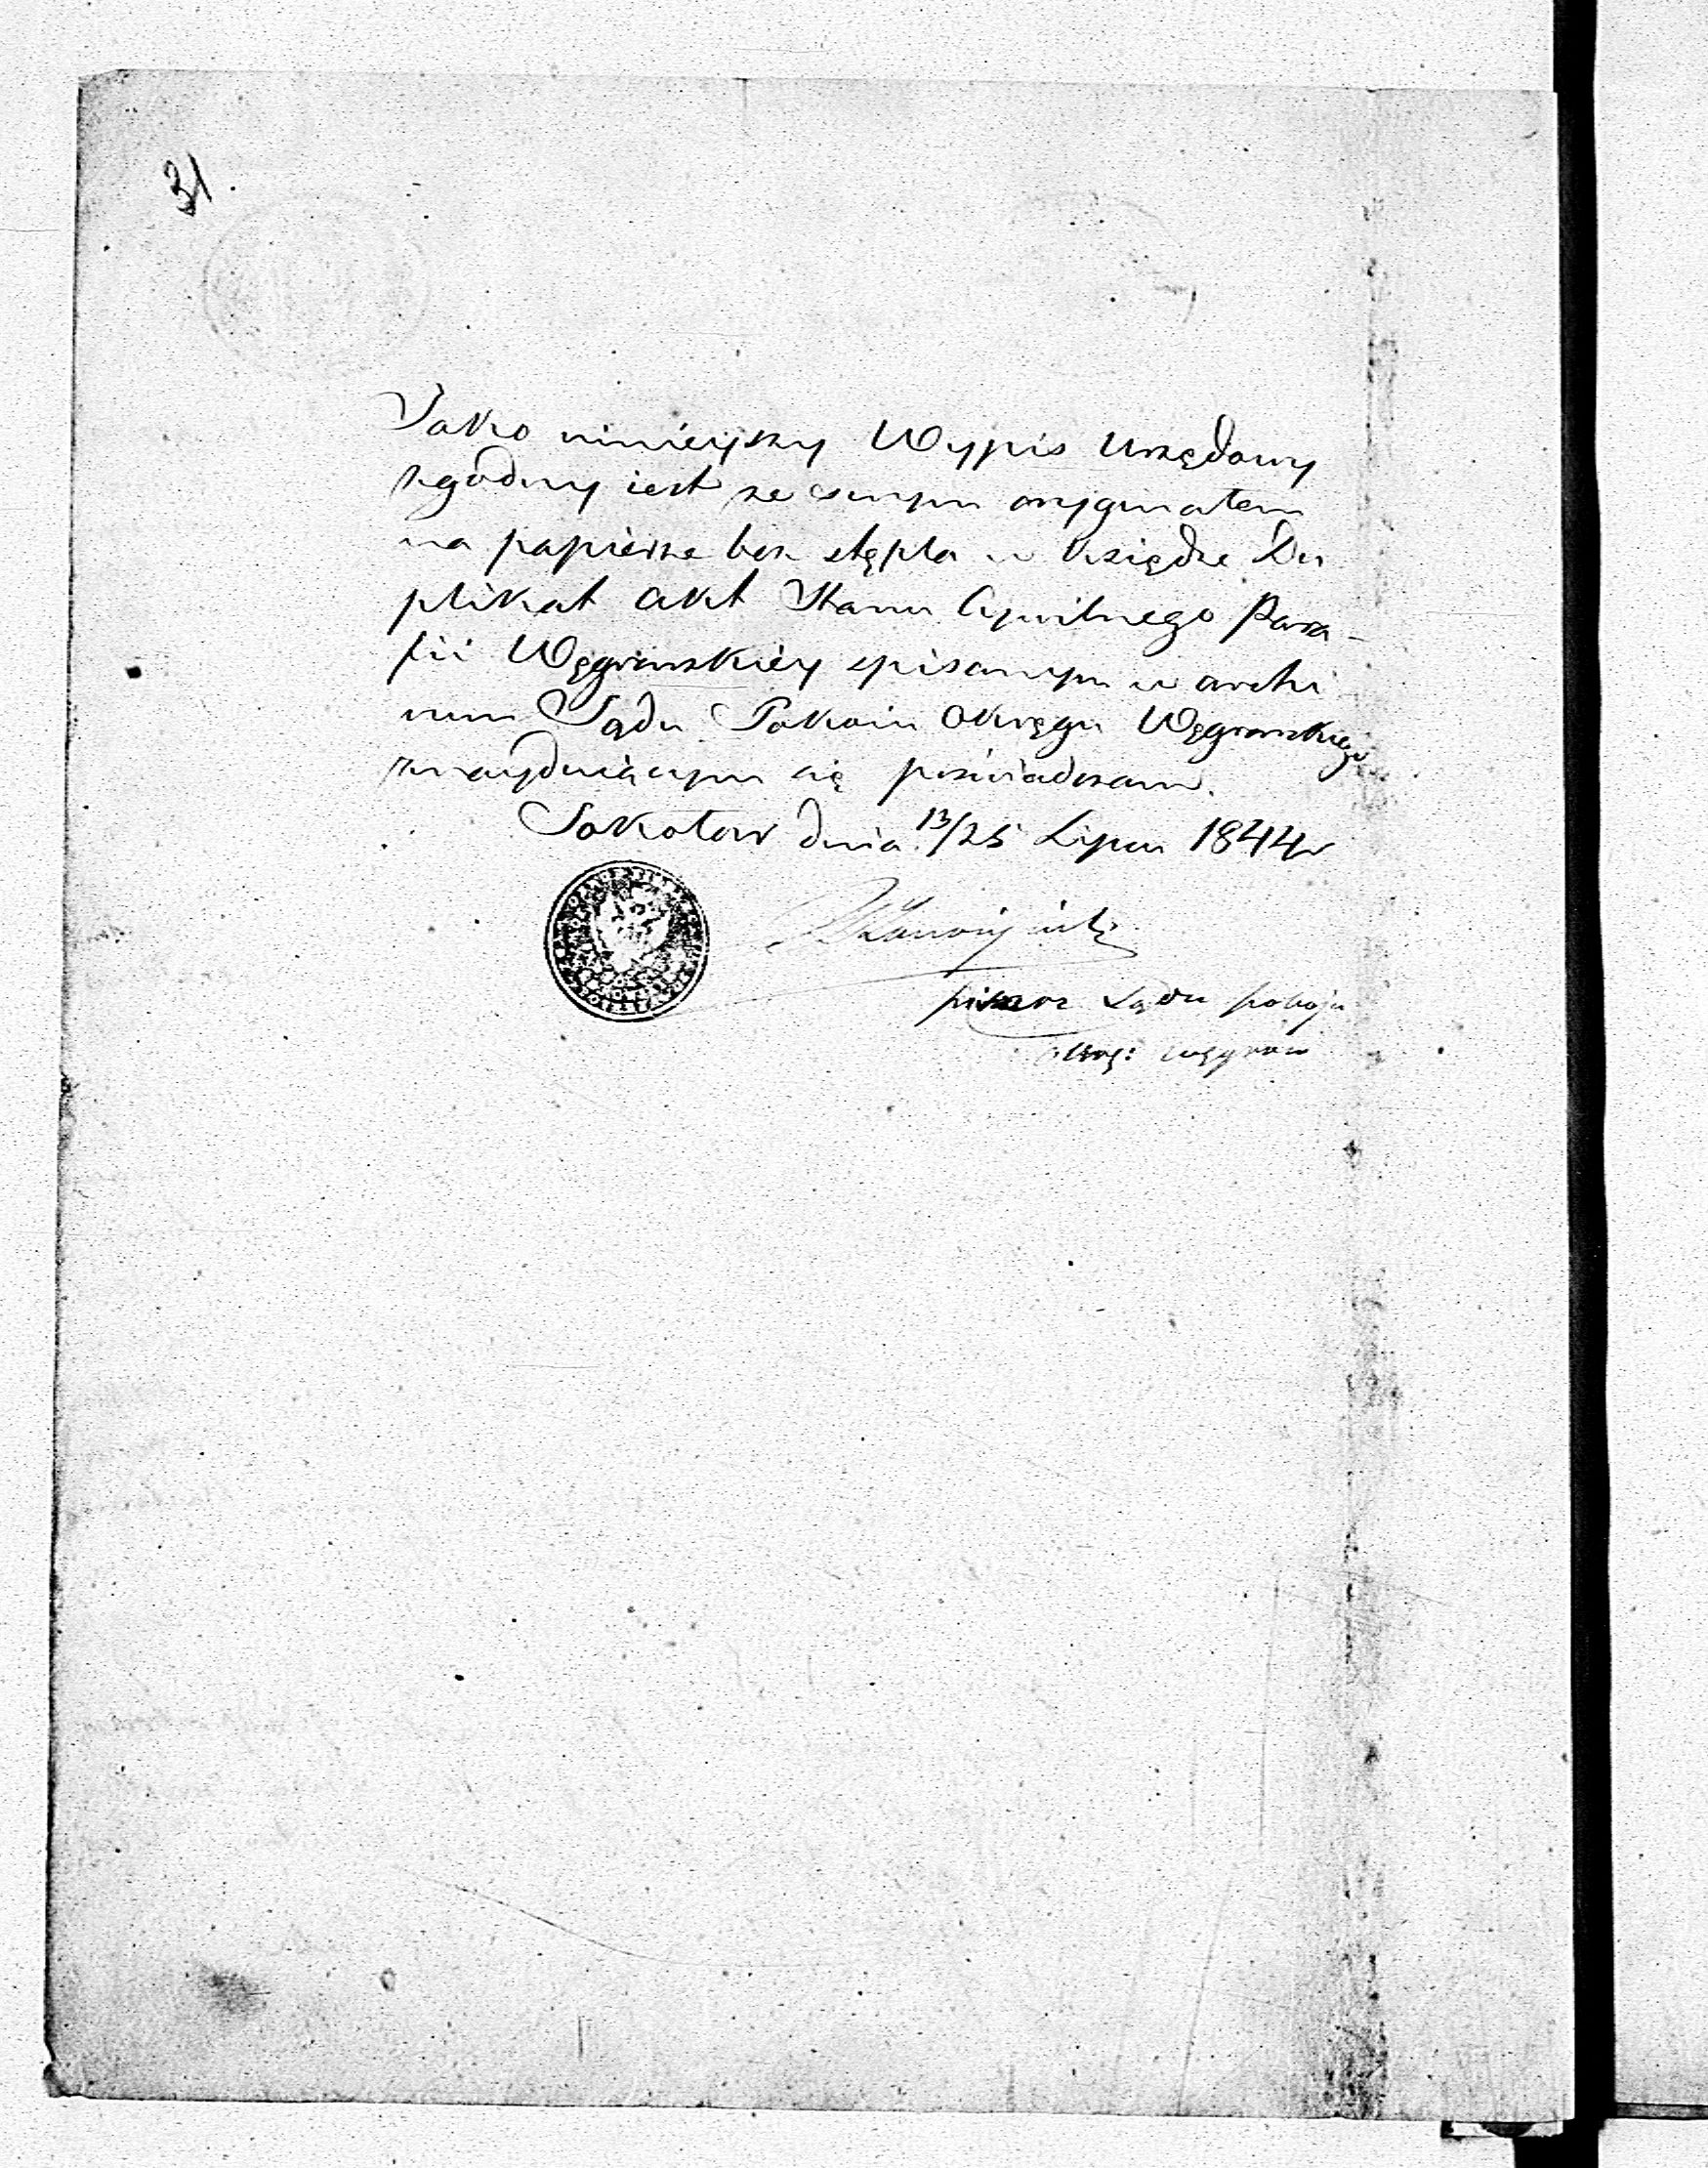 31.
Jako ninieyszy Wypis Urzędowy
zgodny iest ze swym oryginałem
na papierze bez stępla w Księdze Du
plikat Akt Stanu Cywilnego Para-
fii Węgrowskiéy spisanym w archi
wum Sądu Pokoiu Okręgu Węgrowskiego
znayduiącym się poświadczam.
Sokołow dnia 13/25 Lipca 1844 r
pisarz Sądu pokoju
okrę: węgrow